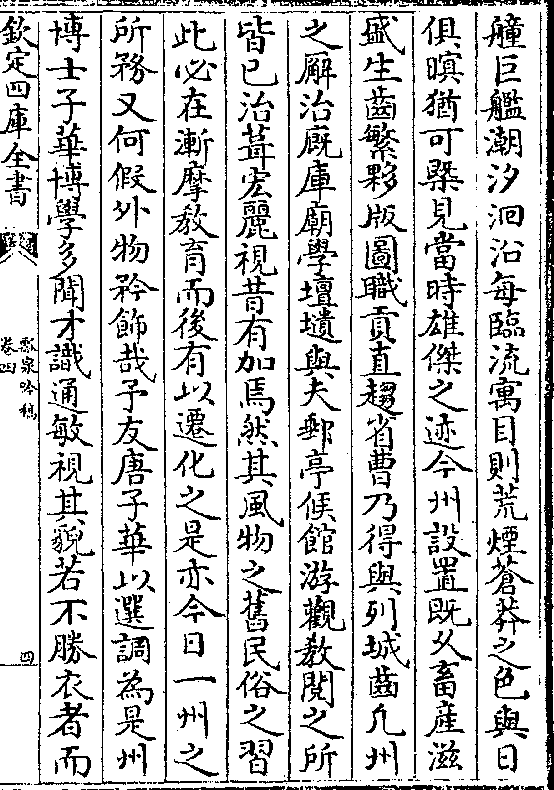 艟巨艦潮汐洄沿每臨流寓目則荒煙蒼莽之色與日
俱暝猶可槩見當時雄傑之迹今州設置既久畜產滋
盛生齒繁夥版圖職貢直趨省曹乃得與列城齒凡州
之廨治廐庫廟學壇壝與夫郵亭候館游觀教閱之所
皆已治葺宏麗視昔有加焉然其風物之舊民俗之習
此必在漸摩教育而後有以遷化之是亦今日一州之
所務又何假外物矜飾哉予友唐子華以選調為是州
博士子華博學多聞才識通敏視其貌若不勝衣者而
欽定四庫全書
瓢泉吟稿
卷四
四